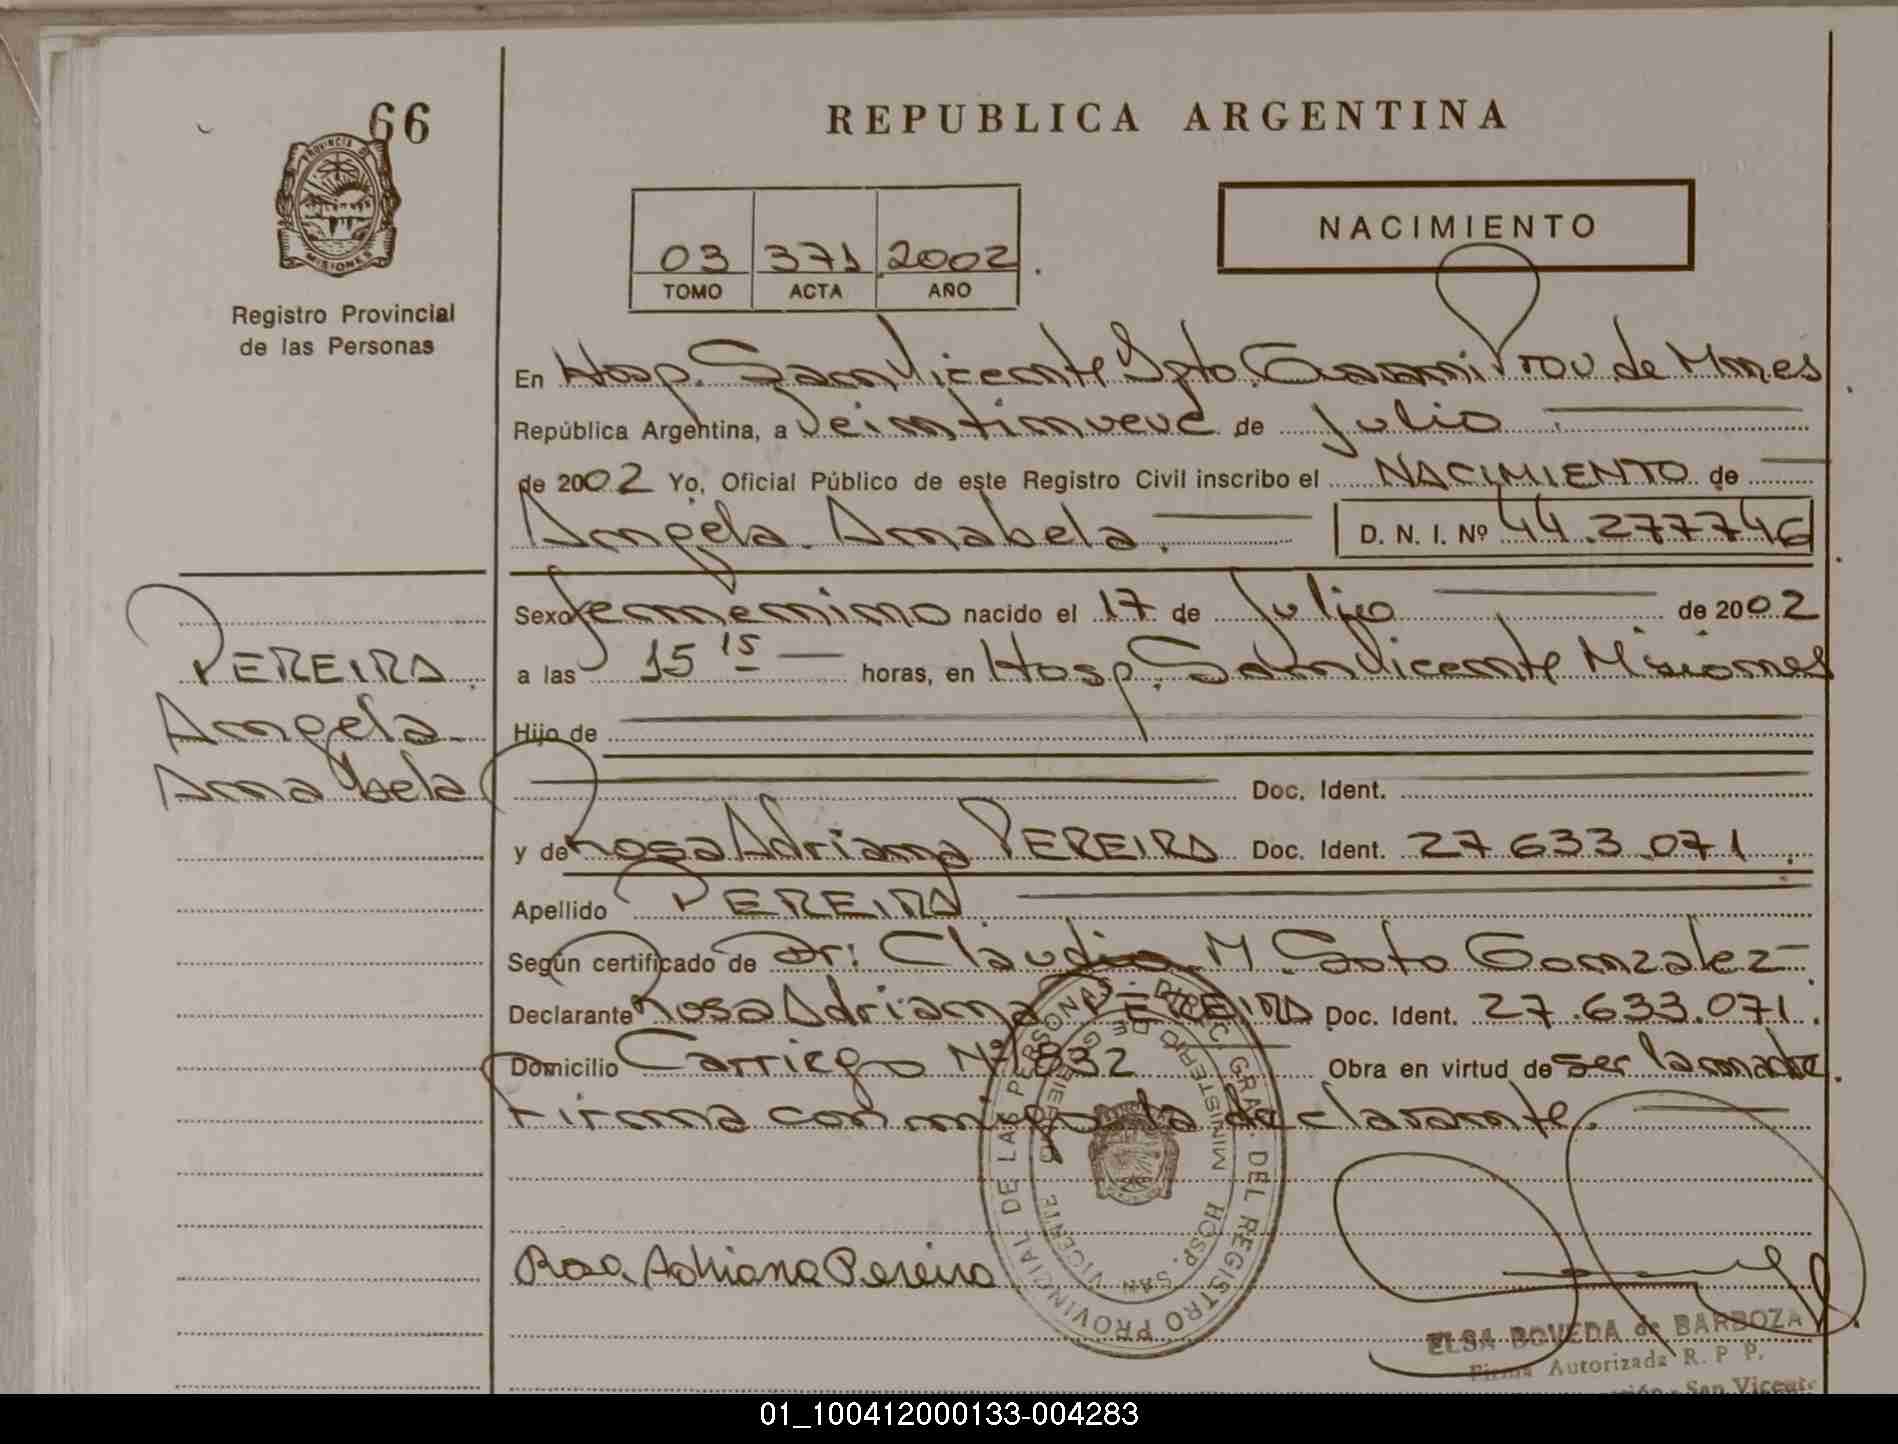 66
PROVINCIA DE
MISIONES
Registro Provincial
de las Personas
REPUBLICA ARGENTINA
03 371 2002
TOMO ACTA AÑO
NACIMIENTO
En Hosp. San Vicente Dpto. Guarani Prov. de Mnes
República Argentina, a Veintinueve de Julio
de 2002 Yo, Oficial Público de este Registro Civil inscribo el NACIMIENTO de
Angela Anabela D. N. I. Nº 44.277746
Sexo femenino nacido el 17 de Julio de 2002
a las 15 15 horas, en Hosp. San Vicente Misiones
Hijo de
Doc. Ident.
y de Rosa Adriana PEREIRA Doc. Ident. 27 633.071
Apellido PEREIRA
Según certificado de Dr: Claudio M. Soto Gonzalez
Declarante Rosa Adriana PEREIRA Doc. Ident. 27.633.071.
Domicilio Carriego Nº 1832 Obra en virtud de ser la madre.
Firma conmigo la declarante.
PEREIRA
Angela
Anabela
Rosa Adriana Pereira
DIREC. GRAL. DEL REGISTRO PROVINCIAL DE LAS PERSONAS
MINISTERIO DE GOBIERNO
HOSP. SAN VICENTE
ELSA BOVEDA de BARBOZA
Firma Autorizada R. P P.
San Vicente
01_100412000133-004283